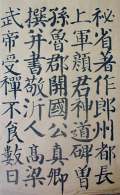 秘省著作郎州都長
上軍顏君神道碑曾
孫魯郡開國公真卿
撰并書敬沂人高梁
武帝受禪不食數日